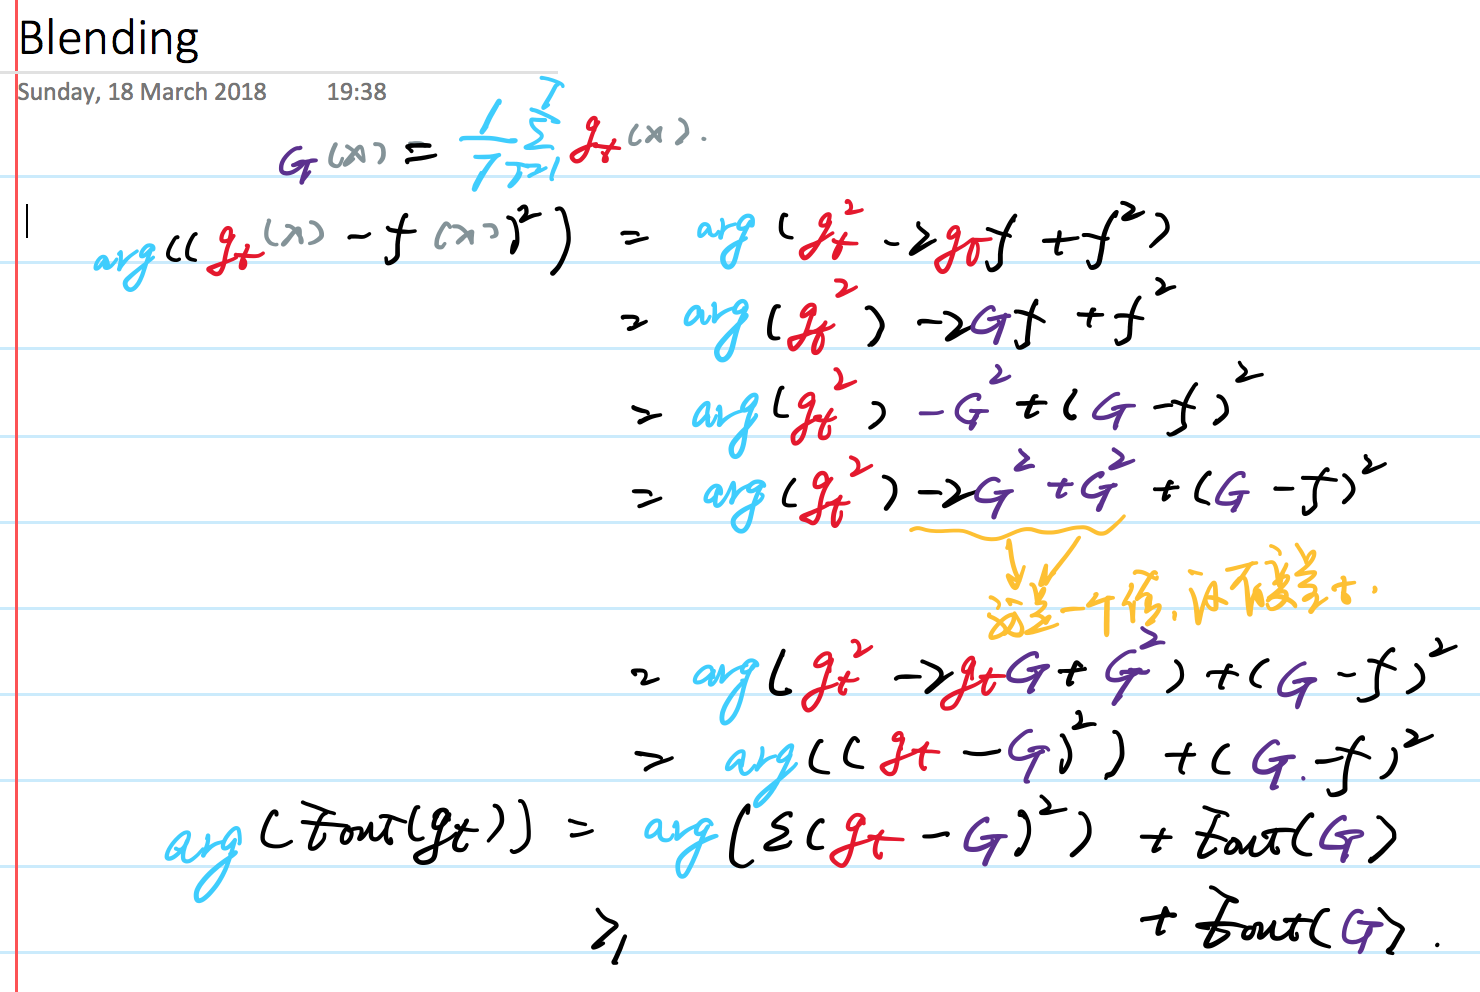 Blending
Sunday, 18 March 2018 19:38
G(x) = 1/T Σ_{t=1}^{T} g_t(x).
arg((g_t(x) - f(x))²) = arg(g_t² - 2g_t f + f²)
= arg(g_t²) - 2Gf + f²
= arg(g_t²) - G² + (G - f)²
= arg(g_t²) - 2G² + G² + (G - f)²
这是一个值,
= arg(g_t² - 2g_t G + G²) + (G - f)²
= arg((g_t - G)²) + (G - f)²
arg(Eout(g_t)) = arg(Σ(g_t - G)²) + Eout(G)
≥ + Eout(G).